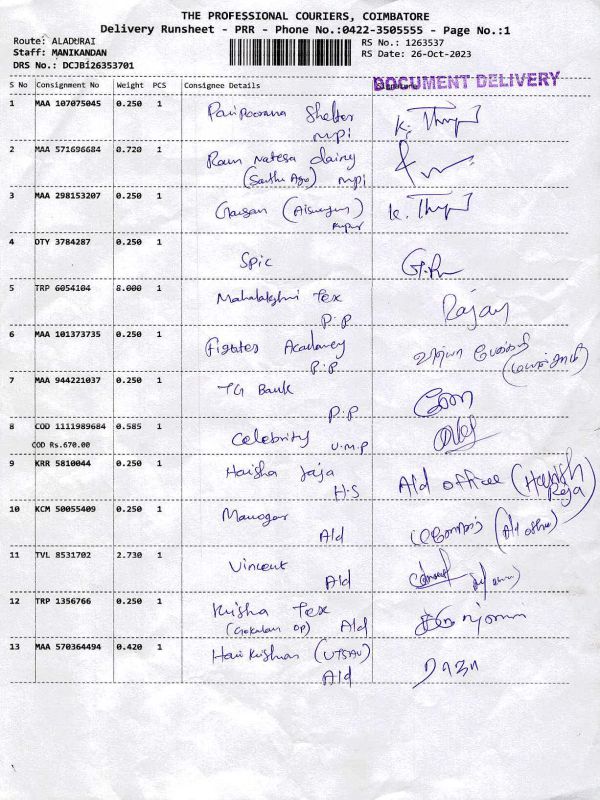 THE PROFESSIONAL COURIERS, COIMBATORE
Delivery Runsheet - PRR - Phone No.:0422-3505555 - Page No.:1
Route: ALADURAI
Staff: MANIKANDAN
DRS No.: DCJBi26353701
RS No.: 1263537
RS Date: 26-Oct-2023
S No Consignment No Weight PCS Consignee Details
DOCUMENT DELIVERY
1 MAA 107075045 0.250 1 Paripoorana Shelter
MPi
2 MAA 571696684 0.720 1 Ram Natesa dairy
MPi
3 MAA 298153207 0.250 1
4 DTY 3784287 0.250 1 Spic
5 TRP 6054104 8.000 1 Mahalakshmi Tex
P.P
Rajan
6 MAA 101373735 0.250 1 Academy
P.P
7 MAA 944221037 0.250 1 TG Bank
P.P
8 COD 1111989684 0.585 1 Celebrity
COD Rs.670.00
U.M.P
9 KRR 5810044 0.250 1 Haisha Jaja
H.S
Ald office
10 KCM 50055409 0.250 1 Manogar
Ald
11 TVL 8531702 2.730 1 Vincent
Ald
12 TRP 1356766 0.250 1 Krisha Tex
(Gokulam OP) Ald
13 MAA 570364494 0.420 1 Hari Krishnan (UTSAV)
Ald